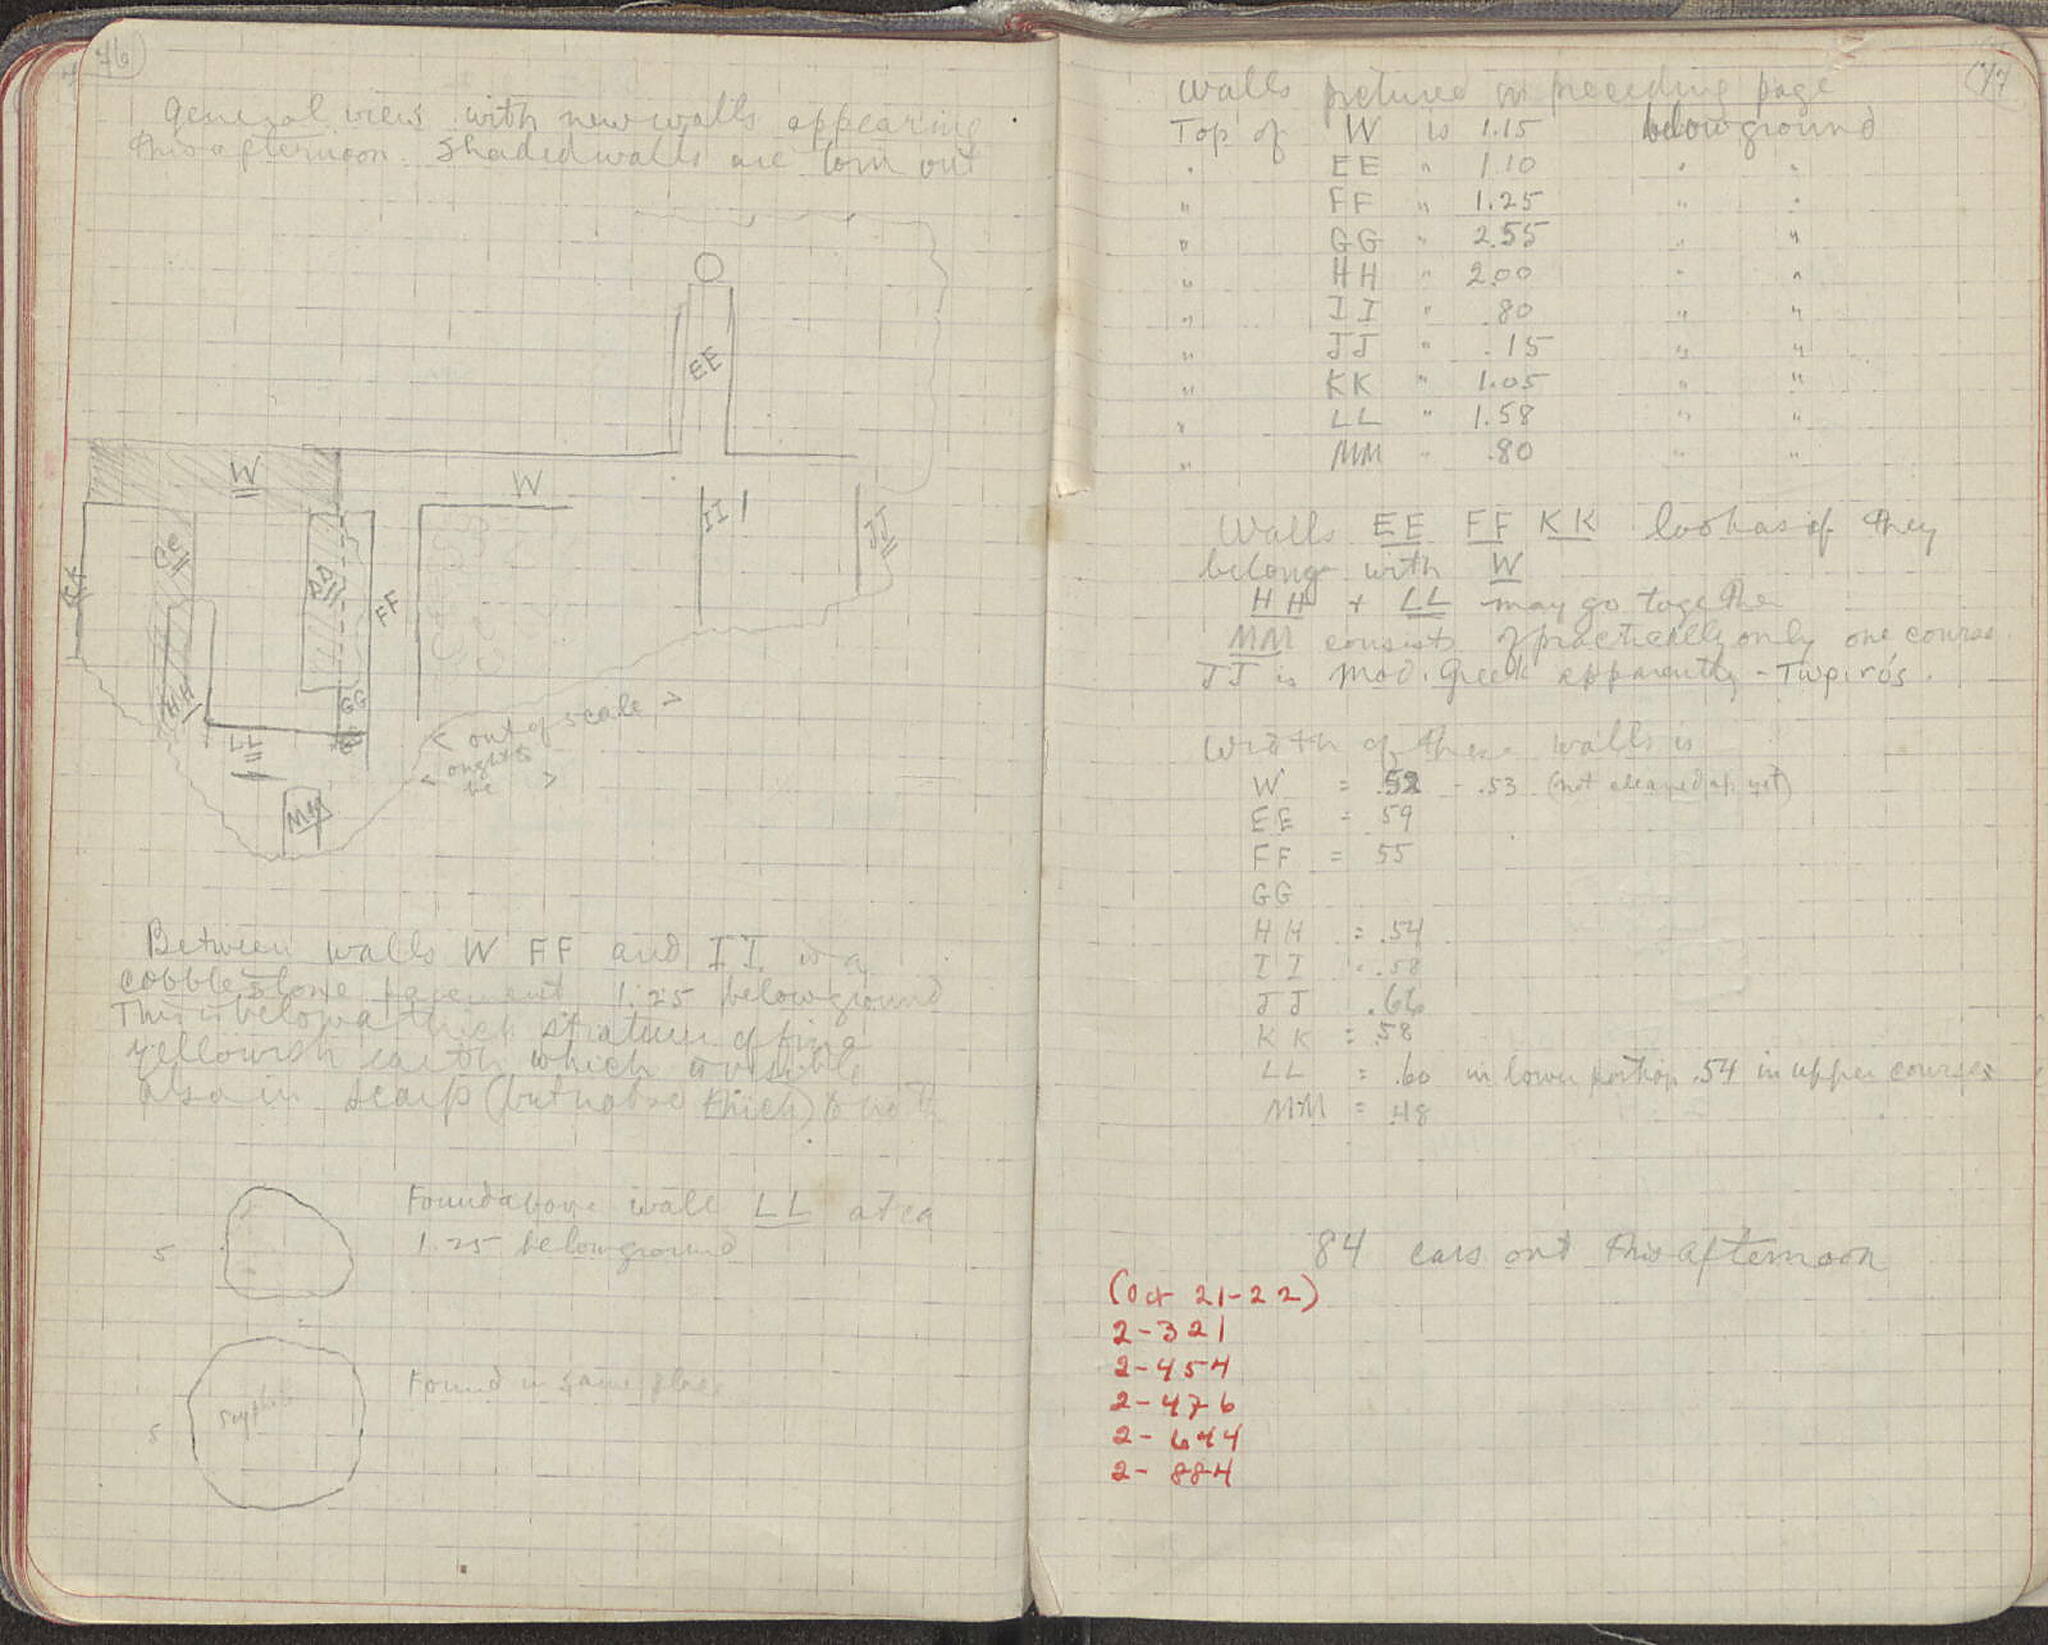 76
General view with new walls appearing
this afternoon. Shaded walls are torn out
EE
W
W
II
JJ
KK
CC
DD
FF
HH
GG
LL
MM
< out of scale >
< ought to be >
Between walls W FF and II is a
cobble stone pavement 1.25 below ground
This is below a thick stratum of fine
yellowish earth which is visible
also in scarp (but not so thick) to north
5
Found above wall LL at ca
1.25 below ground
5
Found in same place
77
Walls pictured on preceding page
Top of W is 1.15 below ground
" EE " 1.10 " "
" FF " 1.25 " "
" GG " 2.55 " "
" HH " 2.00 " "
" II " .80 " "
" JJ " .15 " "
" KK " 1.05 " "
" LL " 1.58 " "
" MM " .80 " "
Walls EE FF KK look as if they
belong with W
HH + LL may go together
MM consists of practically only one course
JJ is Mod. Greek apparently -
Width of these walls is
W = .52 - .53 (not cleaned up yet)
EE = 59
FF = 55
GG
HH = .54
II = .58
JJ .66
KK = .58
LL = .60 in lower portion .54 in upper courses
MM = .48
84 cars out this afternoon
(Oct 21-22)
2-321
2-454
2-476
2-644
2-884